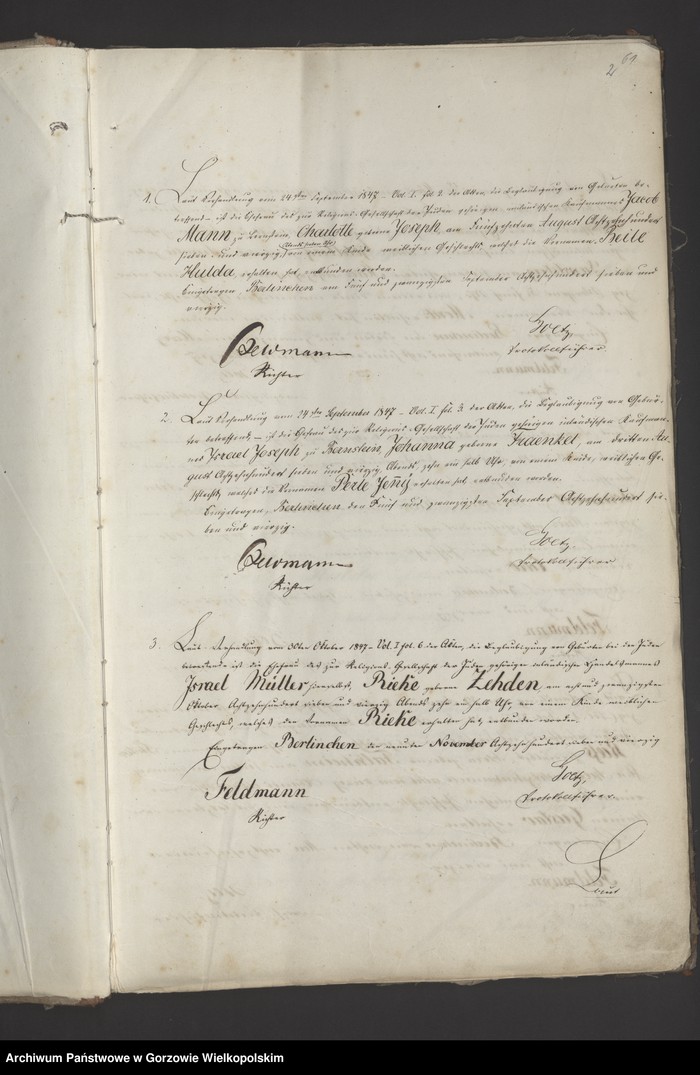 61
2
1. Laut Verhandlung vom 24sten September 1847 – Vol. I. fol. 2. der Akten, die Beglaubigung von Geburten be-
treffend – ist die Ehefrau des zur Religions-Gesellschaft der Juden gehörigen inländischen Kaufmanns Jacob
Mann zu Bernstein, Charlotte geborne Joseph, am Fünfzehnten August Achtzehnhundert
sieben und vierzig, von einem Kinde weiblichen Geschlechts, welches die Vornamen, Beile
Hulda erhalten hat, entbunden worden.
Eingetragen, Berlinchen am Fünf und zwanzigsten September Achtzehnhundert sieben und
vierzig.
Goetz,
Protokollführer.
Richter
2. Laut Verhandlung vom 24sten September 1847 – Vol. I. fol. 3. der Akten, die Beglaubigung von Gebur-
ten betreffend, – ist die Ehefrau des zur Religions-Gesellschaft der Juden gehörigen inländischen Kaufman-
nes Israel Joseph zu Bernstein, Johanna geborne Fraenkel, am dritten Au-
gust Achtzehnhundert sieben und vierzig, Abends zehn ein halb Uhr, von einem Kinde, weiblichen Ge-
schlechts, welches die Vornamen Perle Jeñy erhalten hat, entbunden worden.
Eingetragen, Berlinchen den Fünf und zwanzigsten September Achtzehnhundert sie-
ben und vierzig.
Goetz,
Protokollführer
Richter
3. Laut Verhandlung vom 30ten Oktober 1847 – Vol. I fol. 6 der Akten, die Beglaubigung von Geburten bei den Juden
betreffend ist die Ehefrau des zur Religions-Gesellschaft der Juden gehörigen inländischen Handelsmannes
Israel Müller hierselbst, Rieke geborne Zehden, am acht und zwanzigsten
Oktober Achtzehnhundert sieben und vierzig Abends zehn ein halb Uhr, von einem Kinde weiblichen
Geschlechts, welches den Vornamen Rieke erhalten hat, entbunden worden.
Eingetragen Berlinchen den neunten November Achtzehnhundert sieben und vierzig
Feldmann
Richter
Goetz,
Protokollführer.
Laut
Archiwum Państwowe w Gorzowie Wielkopolskim